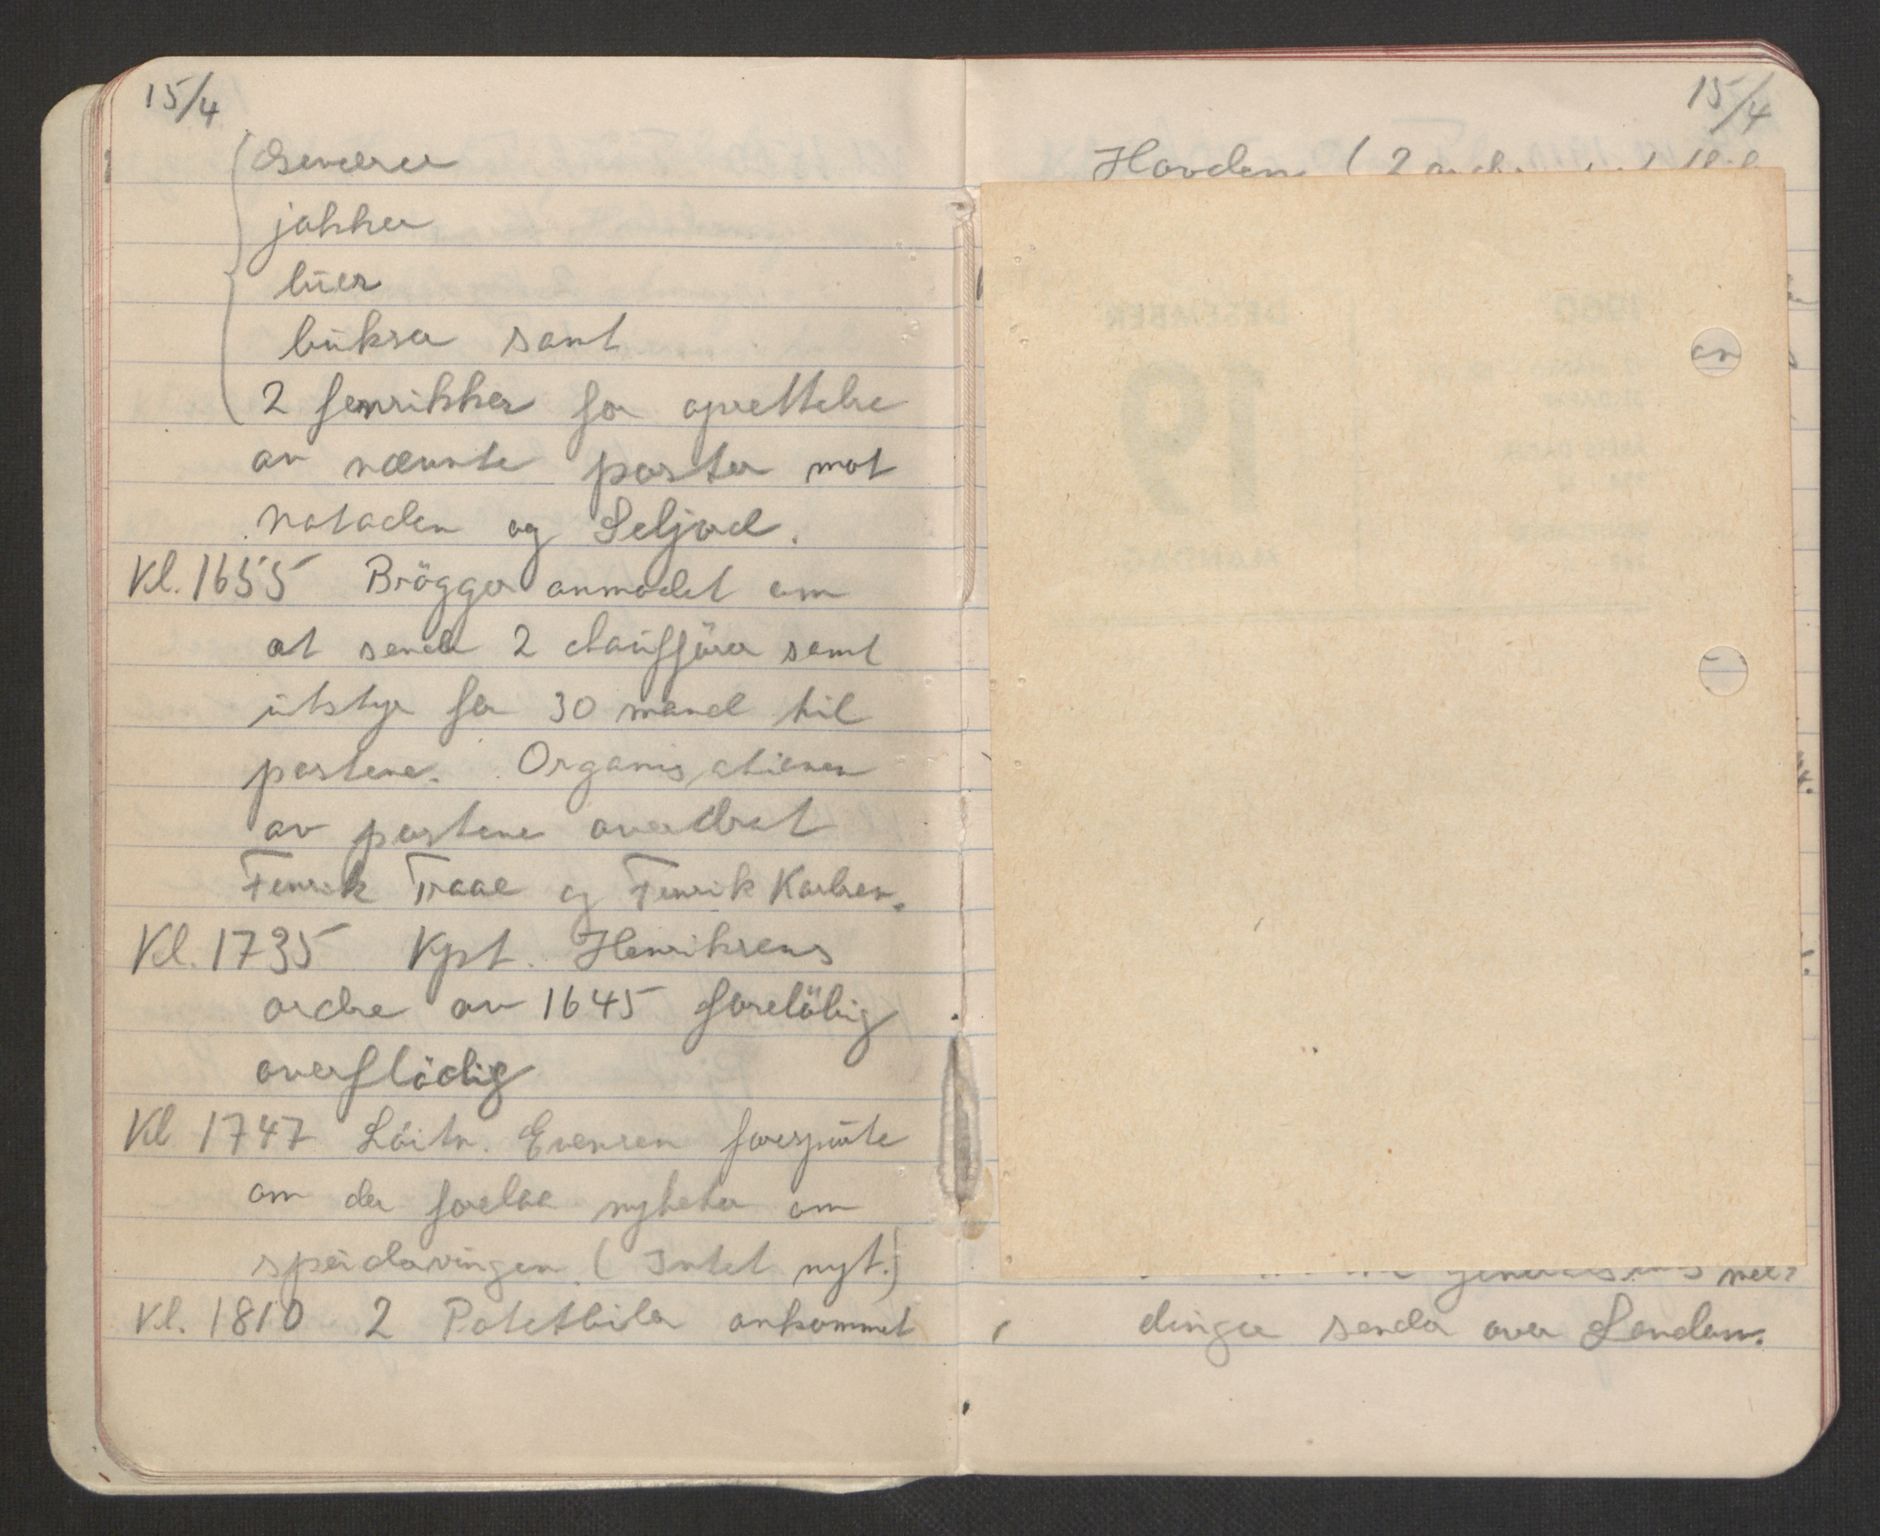 15/4
Geværer
jakker
luer
bukser samt
2 fenrikker for oprettelse
av nævnte poster mot
Notodden og Seljord.
Kl. 1655 Brögger anmodet om
at sende 2 chauffører samt
utstyr for 30 mand til
postene. Organisationen
av postene overdrat
Fenrik Traae og Fenrik Karlsen.
Kl. 1735 Kpt. Henriksens
ordre av 1645 foreløbig
overflödig
Kl 1747 Löitn. Evensen forespurte
om der forelaa nyheter om
speidervingen. (Intet nyt.)
Kl. 1810 2 Potetbiler ankommet
15/4
Hovden (2
1960
DESEMBER
19
MANDAG
av
mel-
dinger sendes over London.